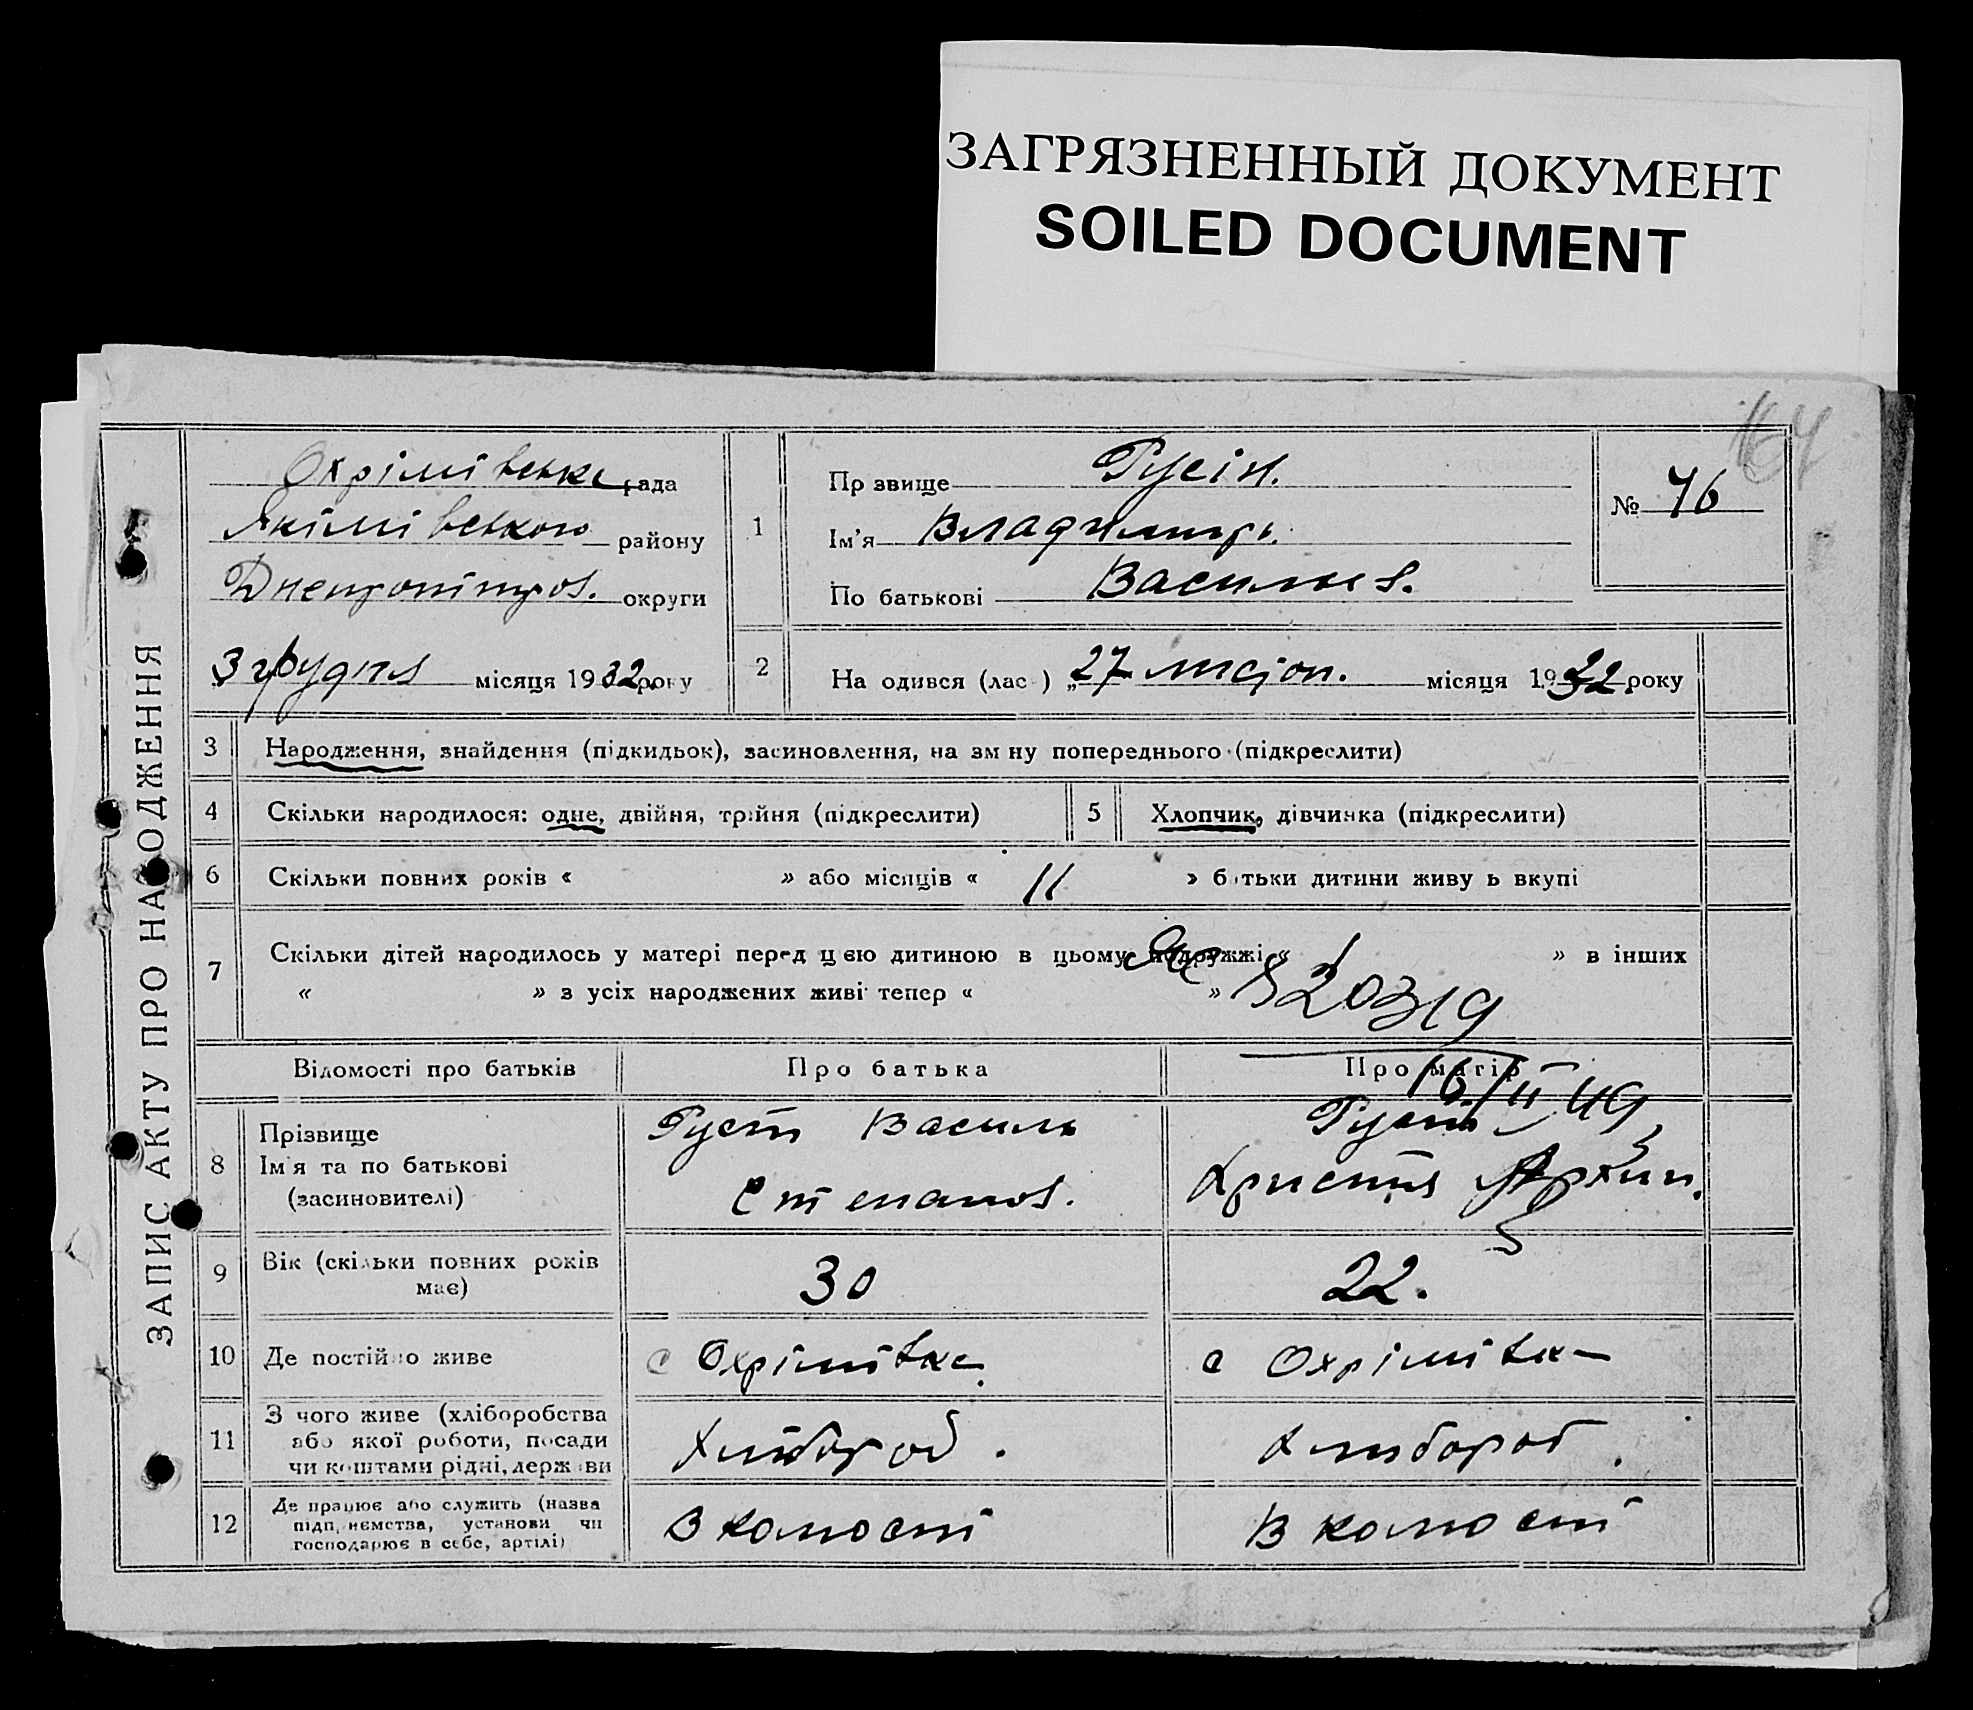 ЗАГРЯЗНЕННЫЙ ДОКУМЕНТ
SOILED DOCUMENT
164
ЗАПИС АКТУ ПРО НАРОДЖЕННЯ
Охрімівська рада
Якімівського району
округи
3 грудня місяця 1932 року
1
Прізвище Русін.
Ім'я Владимир.
По батькові Васильев.
№ 76
2
На одився (лас ) „27 листоп. місяця 1932 року
3 Народження, знайдення (підкидьок), засиновлення, на зм ну попереднього (підкреслити)
4 Скільки народилося: одне, двійня, трійня (підкреслити)
5 Хлопчик, дівчинка (підкреслити)
6 Скільки повних років « » або місяців « 11 » батьки дитини живу ь вкупі
7 Скільки дітей народилось у матері перед цею дитиною в цьому подружжі « » в інших
« » з усіх народжених живі тепер « »
Відомості про батьків Про батька Про матір
16/II 49
8 Прізвище
Ім'я та по батькові
(засиновителі)
Василь
Степанов.
Христя Архип.
9 Вік (скільки повних років
має)
30 22.
10 Де постійно живе с Охрімівка. с Охрімівка
11 З чого живе (хліборобства
або якої роботи, посади
чи коштами рідні, держави
Хлібороб. Хлібороб.
12 Де працює або служить (назва
підп. иємства, установи чи
господарює в себе, артілі)
В колости В колости